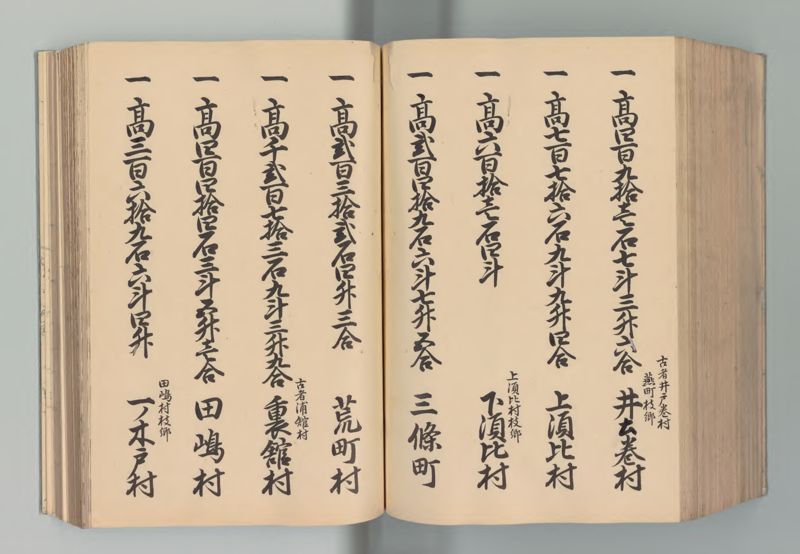 一 高四百九拾壱石七斗三升六合
古者井戸巻村
燕町枝郷
井土巻村
一 高七百七拾六石九斗九升四合 上須比村
一 高六百拾七石四斗
上須比村枝郷
下須比村
一 高弐百四拾九石六斗七升五合 三條町
一 高弐百三拾弐石四升三合 荒町村
一 高千弐百七拾三石九斗三升九合
古者浦館村
裏館村
一 高四百四拾四石三斗五升壱合 田嶋村
一 高三百六拾九石六斗四升
田嶋村枝郷
一ノ木戸村